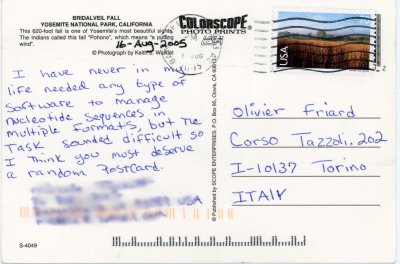 BRIDALVEIL FALL
YOSEMITE NATIONAL PARK, CALIFORNIA
This 620-foot fall is one of Yosemite's most beautiful sights.
The Indians called this fall "Pohono", which means "a puffing
wind".
© Photography by Keith S. Walklet
16-Aug-2005
COLORSCOPE
PHOTO PRINTS
USA
I have never in my
life needed any type of
Software to manage
nucleotide Sequences in
multiple formats, but the
Task sounded difficult so
I think you must deserve
a random Postcard.
USA
Olivier Friard
Corso Tazzoli. 202
I-10137 Torino
ITALY
© Published by SCOPE ENTERPRISES, P.O. Box
S-4049